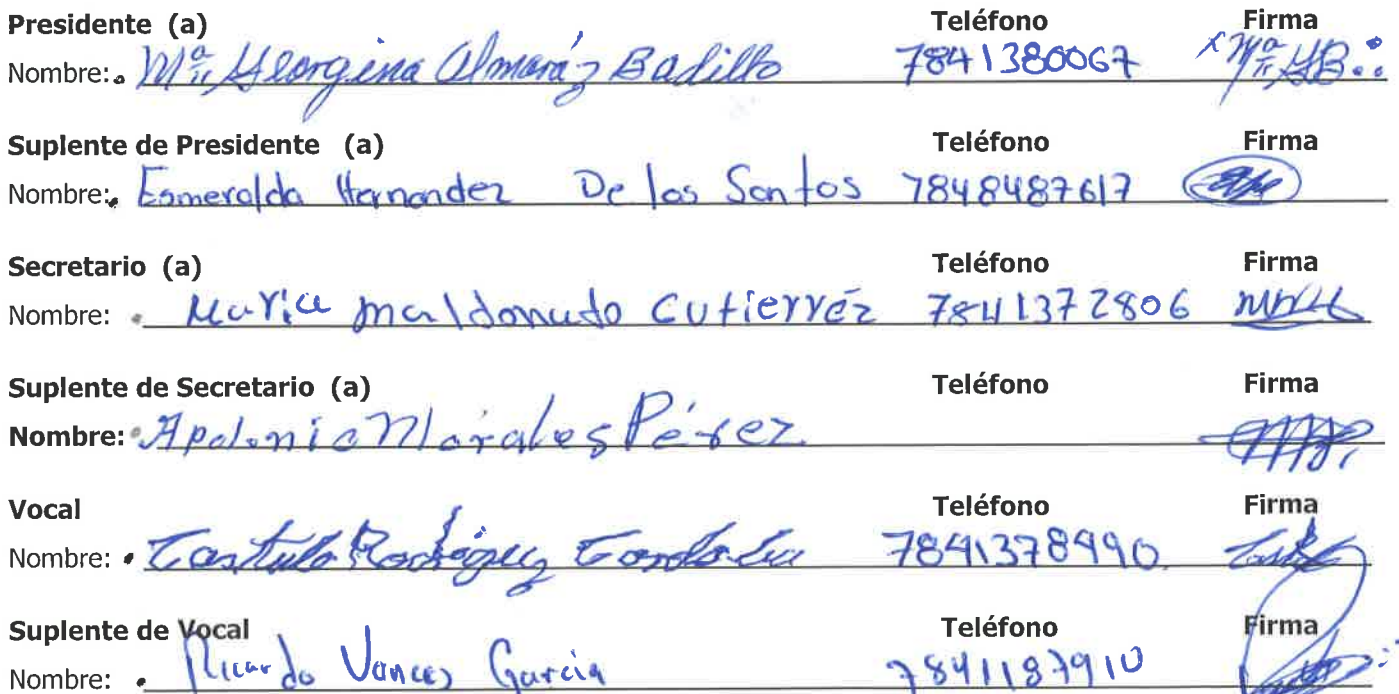 Presidente (a) Teléfono Firma
Nombre: Ma Georgina Almaráz Badillo 7841380067
Suplente de Presidente (a) Teléfono Firma
Nombre: Esmeralda Hernandez De los Santos 7848487617
Secretario (a) Teléfono Firma
Nombre: Maria maldonado Gutierréz 7841372806
Suplente de Secretario (a) Teléfono Firma
Nombre: Apolonio Morales Pérez
Vocal Teléfono Firma
Nombre: Castulo Rodríguez 7841378990
Suplente de Vocal Teléfono Firma
Nombre: Ricardo García 7841187910